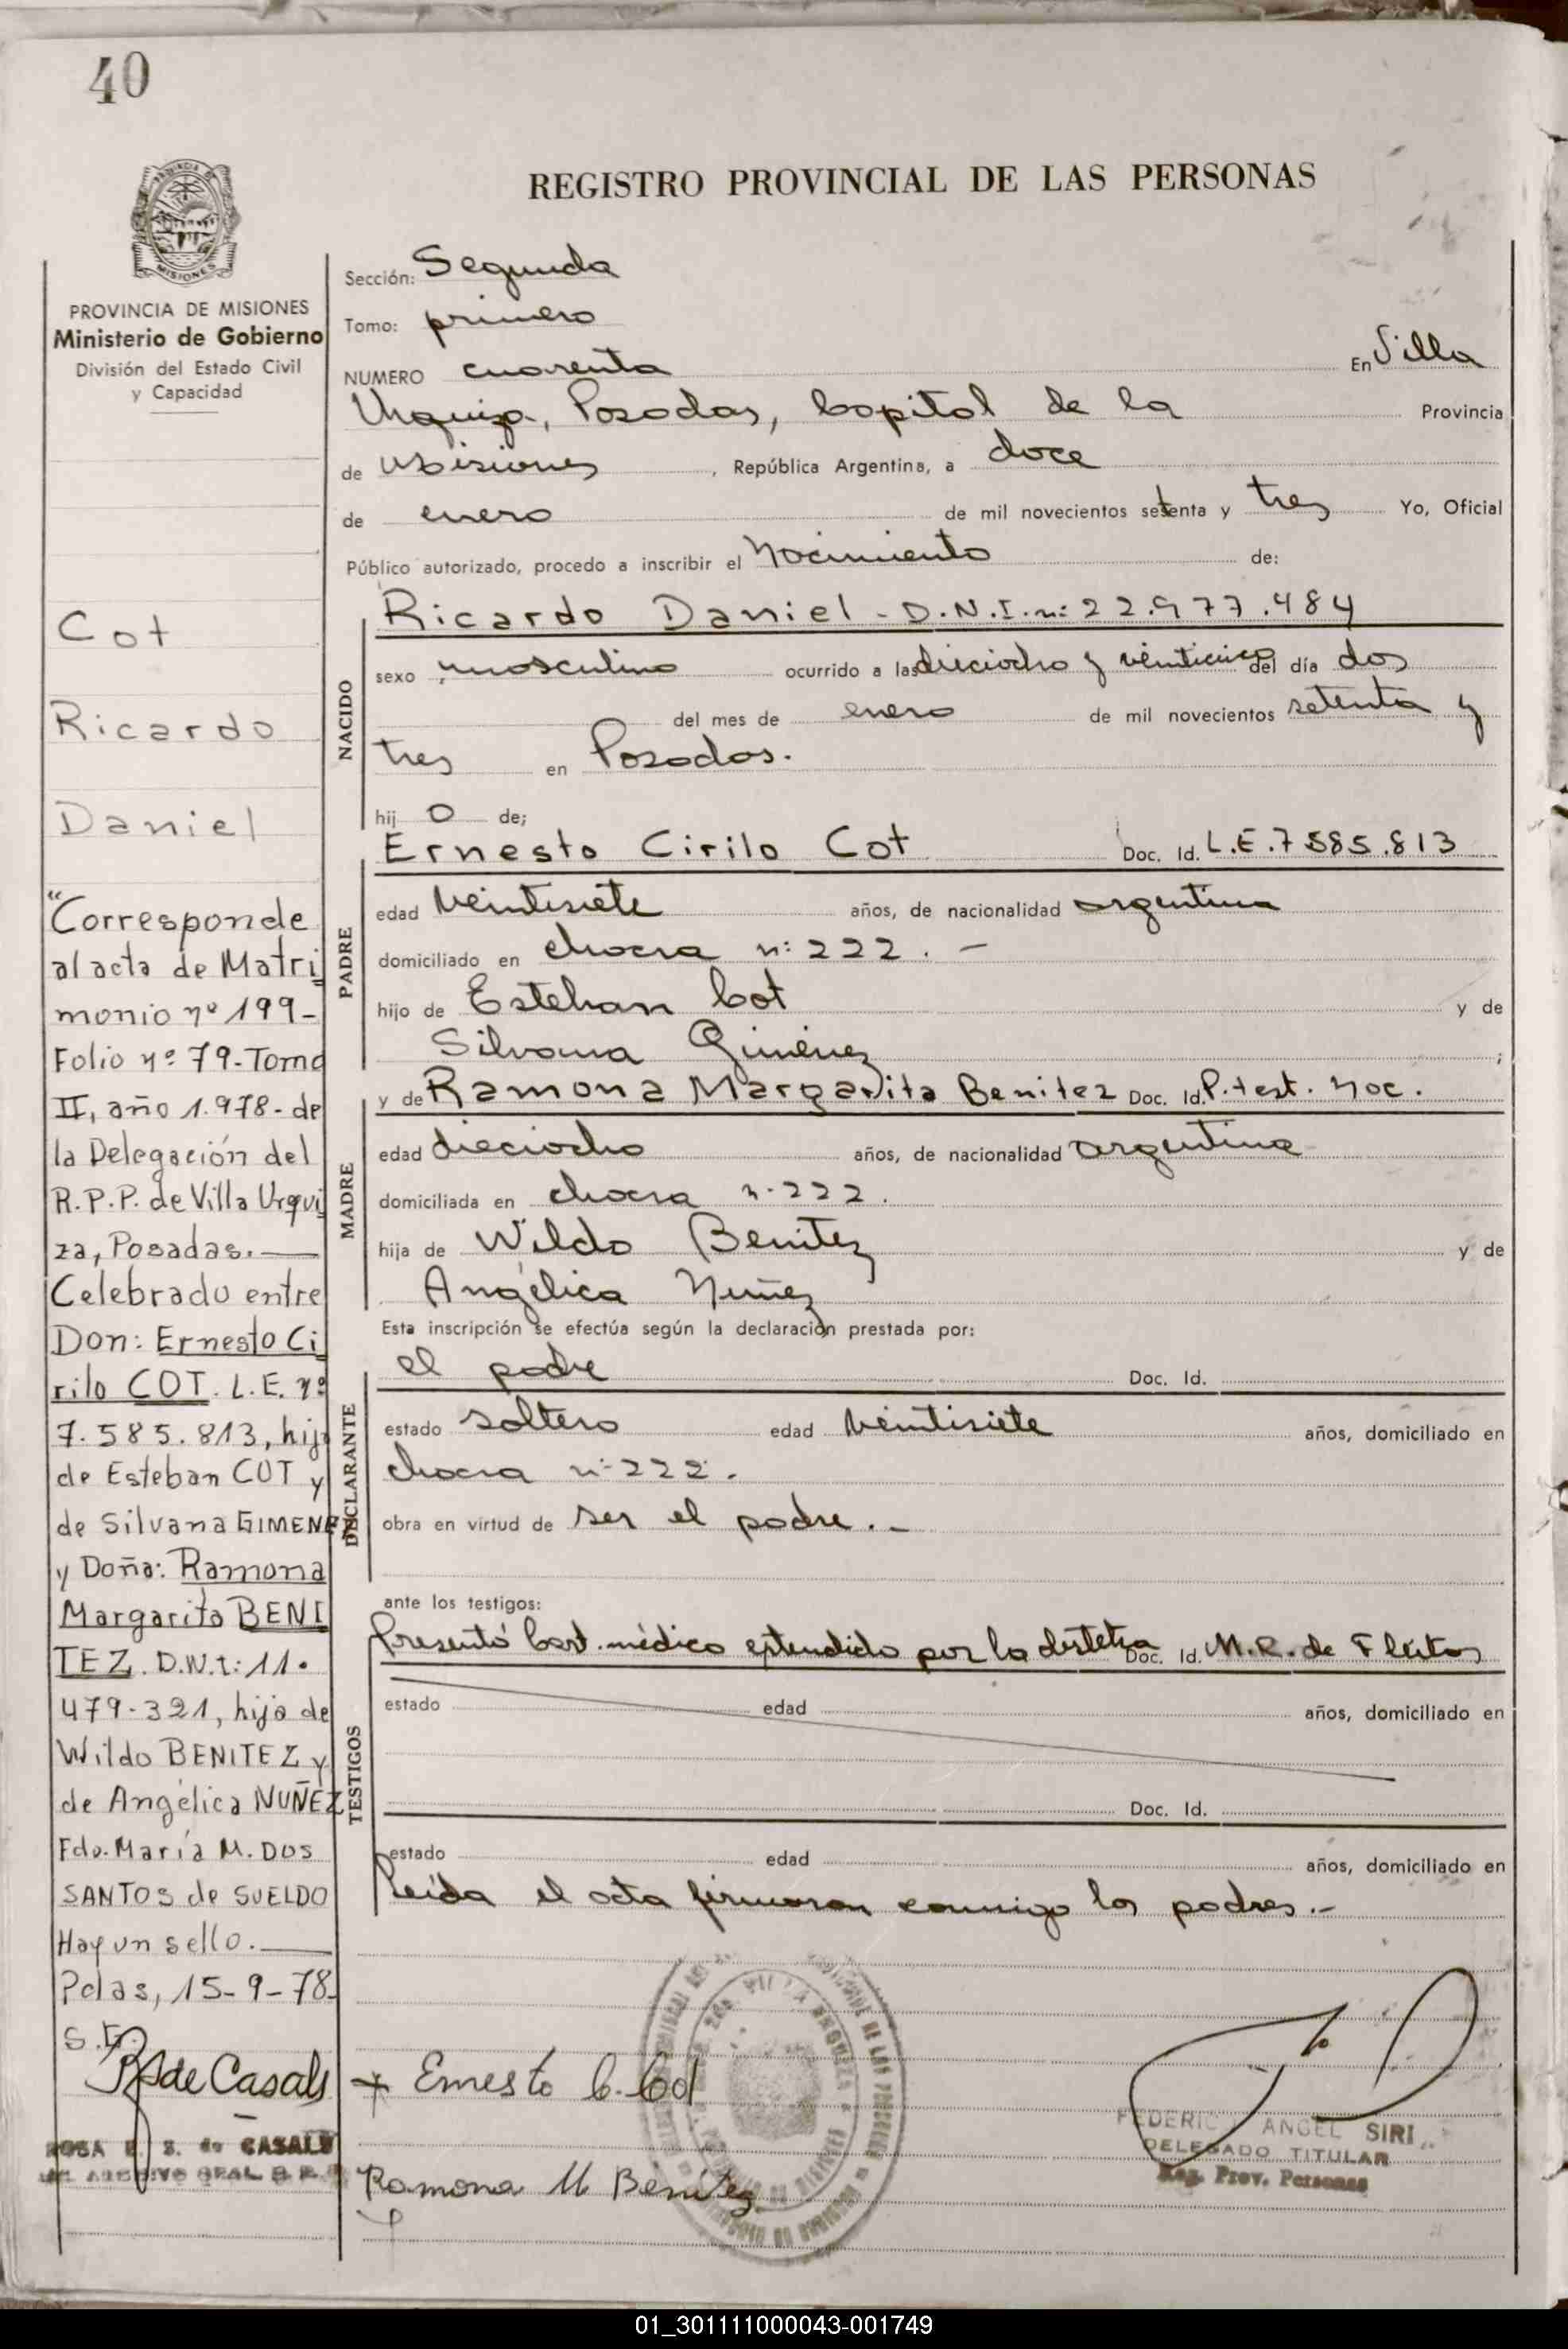 40
REGISTRO PROVINCIAL DE LAS PERSONAS
MISIONES
PROVINCIA DE MISIONES
Ministerio de Gobierno
División del Estado Civil
y Capacidad
Cot
Ricardo
Daniel
"Corresponde
al acta de Matri
monio nº 199-
Folio nº 79-Tomo
II, año 1.978- de
la Delegación del
R.P.P. de Villa Urqui
za, Posadas.—
Celebrado entre
Don: Ernesto Ci
rilo COT. L.E. nº
7.585.813, hijo
de Esteban COT y
de Silvana GIMENEZ
y Doña: Ramona
Margarita BENI
TEZ. D.N.I: 11.
479-321, hija de
Wildo BENITEZ y
de Angélica NUÑEZ
Fdo. María M. DOS
SANTOS de SUELDO
Hay un sello.—
Pdas, 15-9-78.
de Casals
ROSA de CASALS
Sección: Segunda
Tomo: primero
NUMERO cuarenta En Villa
Urquiza, Posadas, Capital de la Provincia
de Misiones, República Argentina, a doce
de enero de mil novecientos setenta y tres Yo, Oficial
Público autorizado, procedo a inscribir el Nacimiento de:
NACIDO
Ricardo Daniel - D.N.I. n: 22.977.484
sexo masculino ocurrido a las dieciocho y veinticinco del día dos
del mes de enero de mil novecientos setenta y
tres en Posadas.
hij o de;
PADRE
Ernesto Cirilo Cot Doc. Id. L.E. 7585.813
edad veintisiete años, de nacionalidad argentina
domiciliado en chacra n: 222. —
hijo de Esteban Cot y de
Silvana Giménez ;
MADRE
y de Ramona Margarita Benitez Doc. Id. P. test. Nac.
edad dieciocho años, de nacionalidad argentina
domiciliada en chacra n. 222.
hija de Wildo Benitez y de
Angélica Nuñez
Esta inscripción se efectúa según la declaración prestada por:
DECLARANTE
el padre Doc. Id.
estado soltero edad veintisiete años, domiciliado en
chacra n: 222.
obra en virtud de ser el padre.-
ante los testigos:
TESTIGOS
Presentó Cert. médico extendido por la Doc. Id. M.R. de
estado edad años, domiciliado en
Doc. Id.
estado edad años, domiciliado en
Leída el acta firmaron conmigo los padres.-
+ Ernesto C. Cot
Ramona M Benítez
FEDERICO ANGEL SIRI
DELEGADO TITULAR
Reg. Prov. Personas
01_301111000043-001749